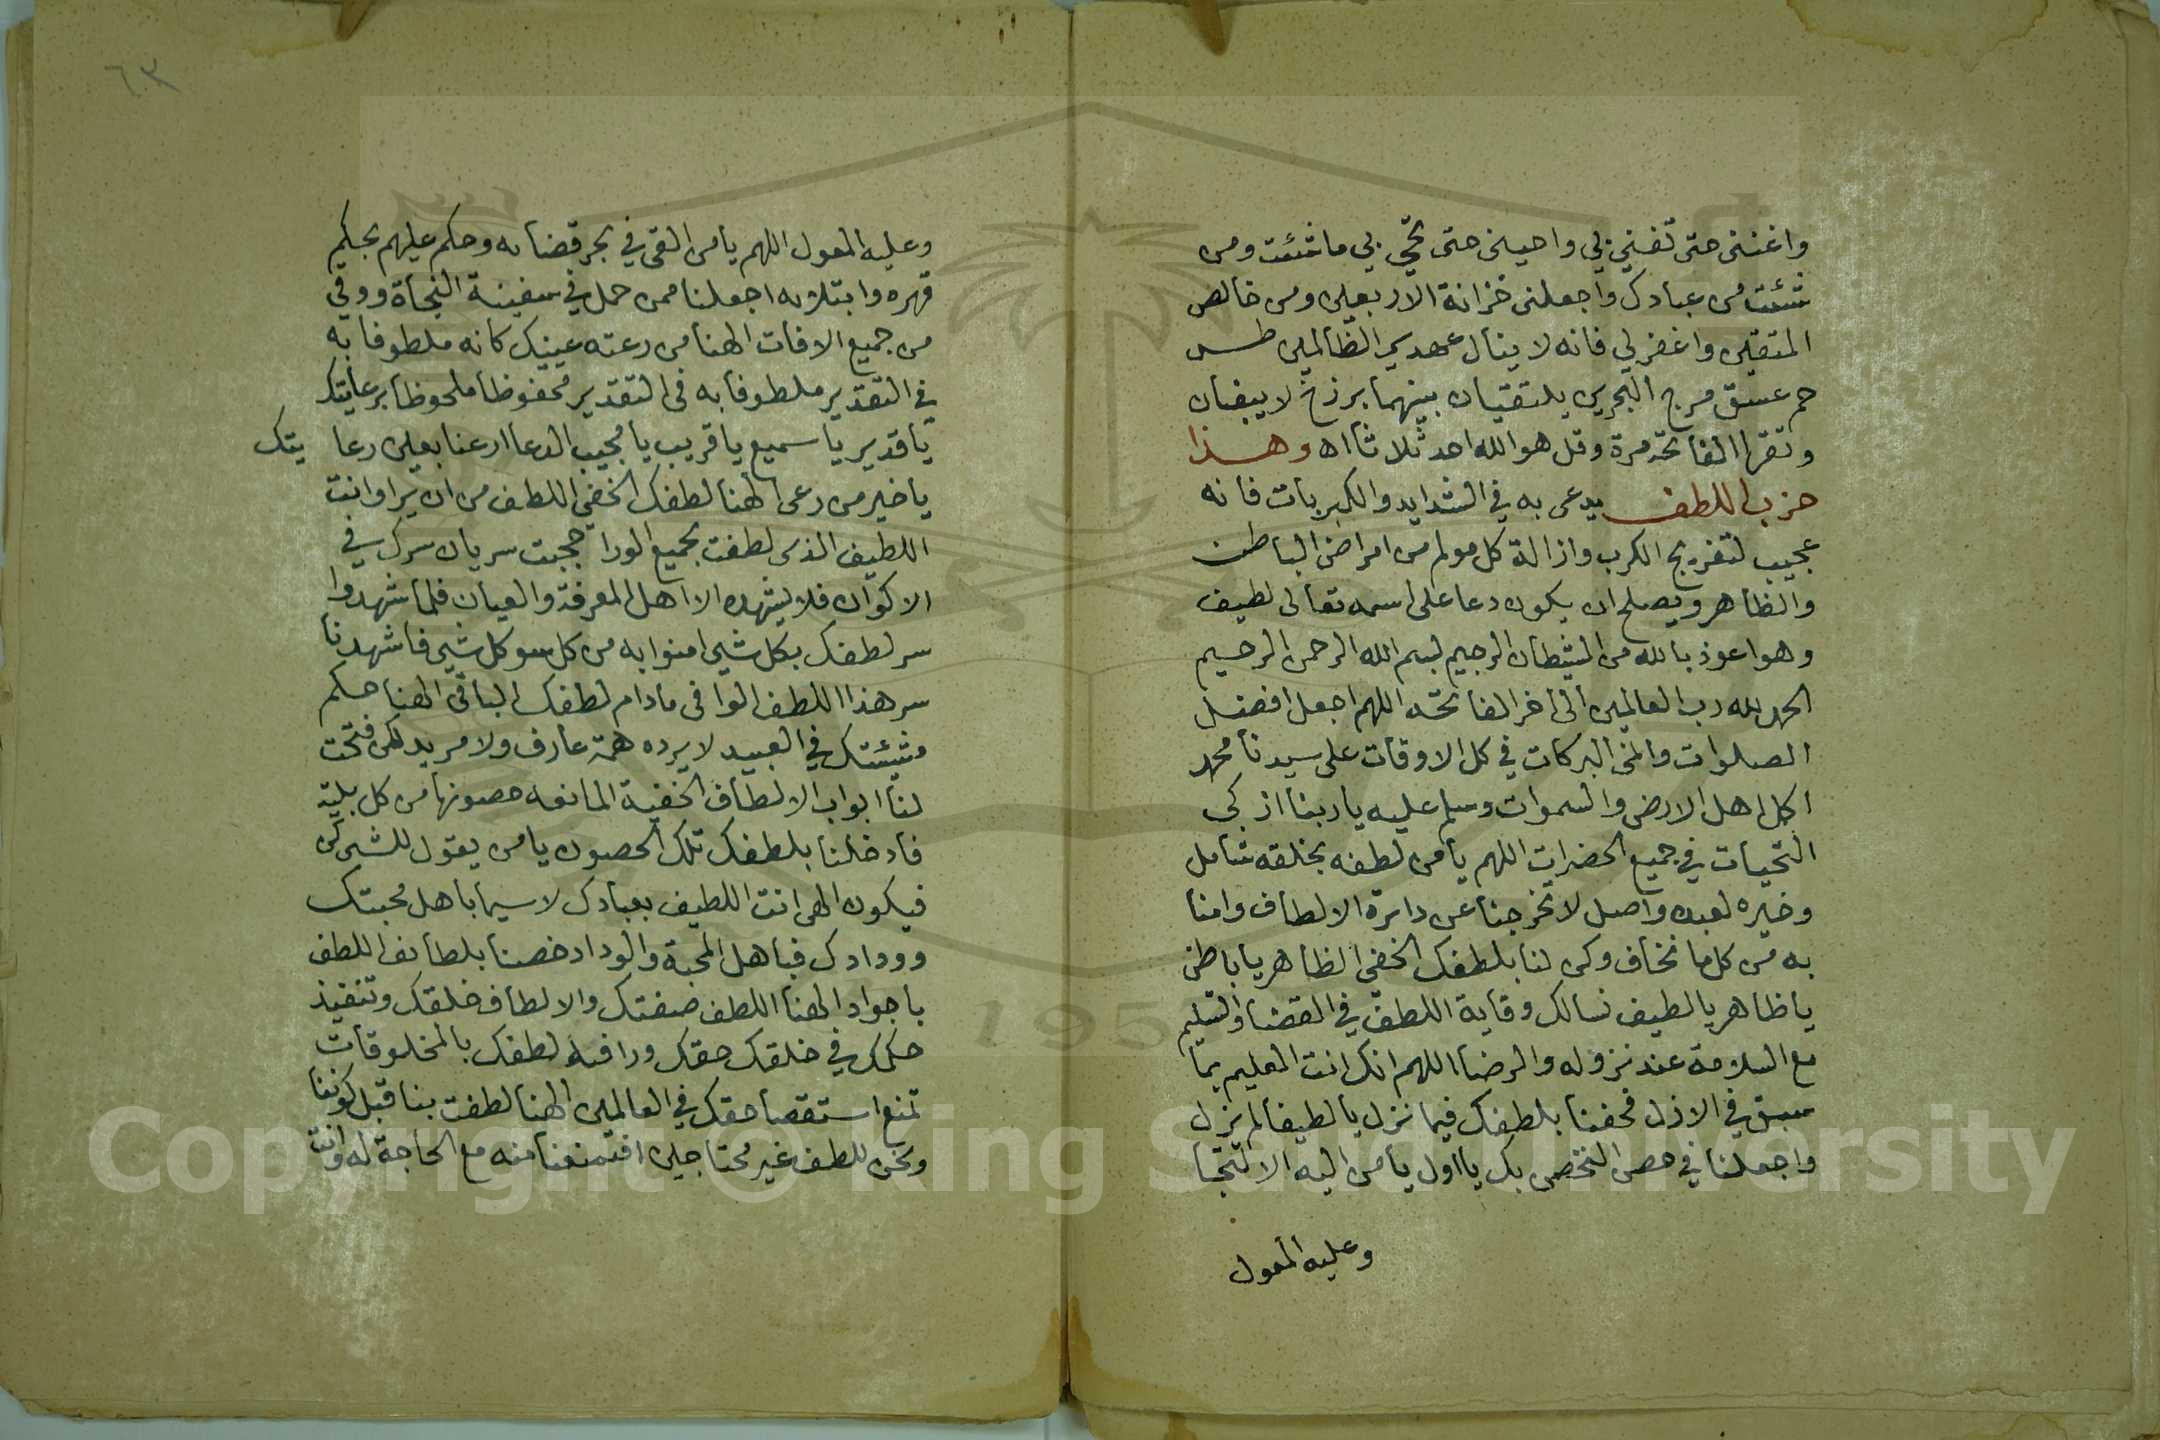 واغننى حتى تغني بي واحينى حتى تحي بي ما شئت ومن
شئت من عبادك واجعلنى خزانة الاربعين ومن خالص
المتقين واغفر لي فانه لا ينال عهدي الظالمين طس
حم عسق مرج البحرين يلتقيان بينهما برزخ لا يبغيان
وتقرا الفاتحة مرة وقل هو الله احد ثلاثا اه وهذا
حزب اللطف يدعى به في الشدايد والكربات فانه
عجيب لتفريج الكرب وازالة كل مولم من امراض الباطن
والظاهر ويصلح ان يكون دعا على اسمه تعالى لطيف
وهو اعوذ بالله من الشيطان الرجيم بسم الله الرحمن الرحيم
الحمد لله رب العالمين الى اخر الفاتحه اللهم اجعل افضل
الصلوات وانمى البركات في كل الاوقات على سيدنا محمد
اكمل اهل الارض والسموات وسلم عليه يا ربنا ازكى
التحيات في جميع الحضرات اللهم يا من لطفه بخلقه شامل
وخيره لعبده واصل لا تخرجنا عن دايرة الالطاف وامنا
به من كل ما نخاف وكن لنا بلطفك الخفي الظاهر يا باطن
يا ظاهر يا لطيف نسالك وقاية اللطف في القضا والتسليم
مع السلامة عند نزوله والرضا اللهم انك انت العليم بما
سبق في الازل فحفنا بلطفك فيما نزل يا لطيفا لم يزل
واجعلنا في حصن التحصن بك يا اول يا من اليه الالتجا
وعليه المعول
٦٣
وعليه المعول اللهم يا من القى في بحر قضائه وحكم عليهم بحكم
قهره وابتلائه اجعلنا ممن حمل في سفينة النجاة ووقي
من جميع الافات الهنا من رعته عينك كانه ملطوفا به
في التقدير ملطوفا به فى التقدير محفوظا ملحوظا برعايتك
يا قدير يا سميع يا قريب يا مجيب الدعا ارعنا بعين رعا يتك
يا خير من رعى الهنا لطفك الخفي اللطف من ان يرا وانت
اللطيف الذى لطفت بجميع الورا حجبت سريان سرك في
الاكوان فلا يشهده الا اهل المعرفة والعيان فلما شهدوا
سر لطفك بكل شي امنوا به من كل سو كل شي فاشهدنا
سر هذا اللطف الوافى مادام لطفك الباقى الهنا حكم
مشيئتك في العبيد لا يرده همة عارف ولا مريد لكن فتحت
لنا ابواب الالطاف الخفية المانعه حصونها من كل بلية
فادخلنا بلطفك تلك الحصون يا من يقول للشي كن
فيكون الهى انت اللطيف بعبادك لا سيما باهل محبتك
وودادك فباهل المحبة والوداد خصنا بلطائف اللطف
يا جواد الهنا اللطف صفتك والالطاف خلقك وتنفيذ
حكمك في خلقك حقك ورافة لطفك بالمخلوقات
تمنع استقصا حقك في العالمين الهنا لطفت بنا قبل كوننا
ونحن للطف غير محتاجين افتمنعنا منه مع الحاجة له وانت